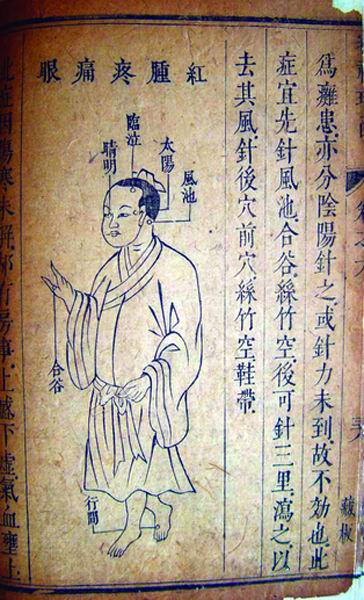 藏板
爲離患、亦分陰陽針之、或針力未到、故不効也、此
症宜先針風池、合谷、絲竹空、後可針三里、瀉之以
去其風、針後穴、前穴、絲竹空、鞋帶、
紅腫疼痛眼
風池
太陽
臨泣
睛明
合谷
行間
此症因傷寒未解却有房事、上下虛、氣血壅上